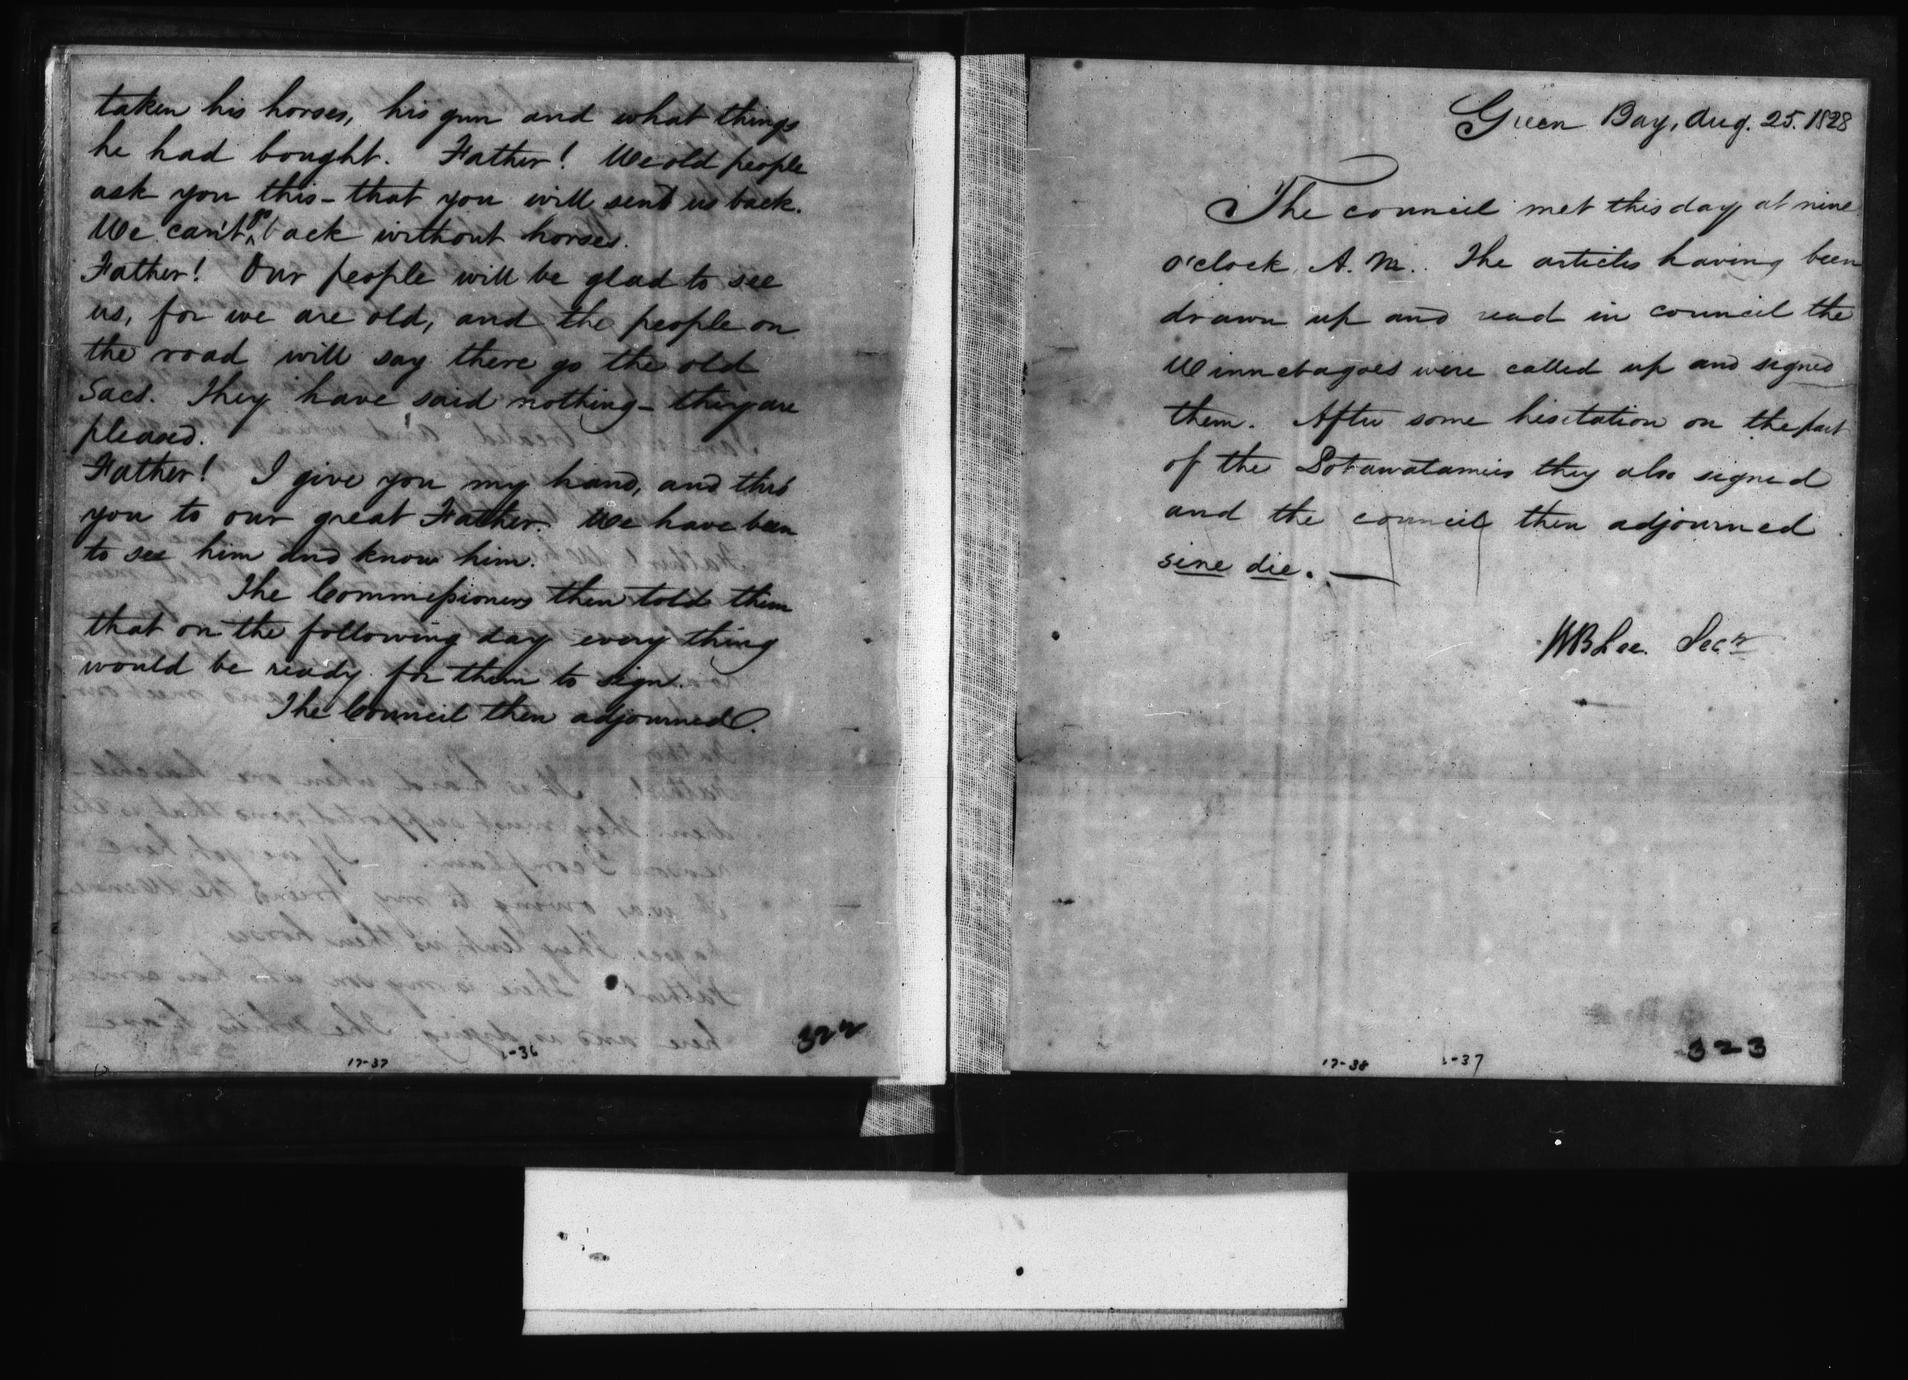 taken his horses, his gun and what things
he had bought. Father! We old people
ask you this - that you will send us back.
We can't go back without horses.
Father! Our people will be glad to see
us, for we are old, and the people on
the road will say there go the old
Sacs. They have said nothing - they are
pleased.
Father! I give you my hand, and thro'
you to our great Father. We have been
to see him and know him.
The Commissioners then told them
that on the following day every thing
would be ready for them to sign.
The Council then adjourned.
322
17-37
-36
Green Bay, Aug. 25. 1828
The council met this day at nine
o'clock A. M. The articles having been
drawn up and read in council the
Winnebagoes were called up and signed
them. After some hesitation on the part
of the Potawatamies they also signed
and the council then adjourned
sine die. —
WB Lee. Secy
323
17-38
-37